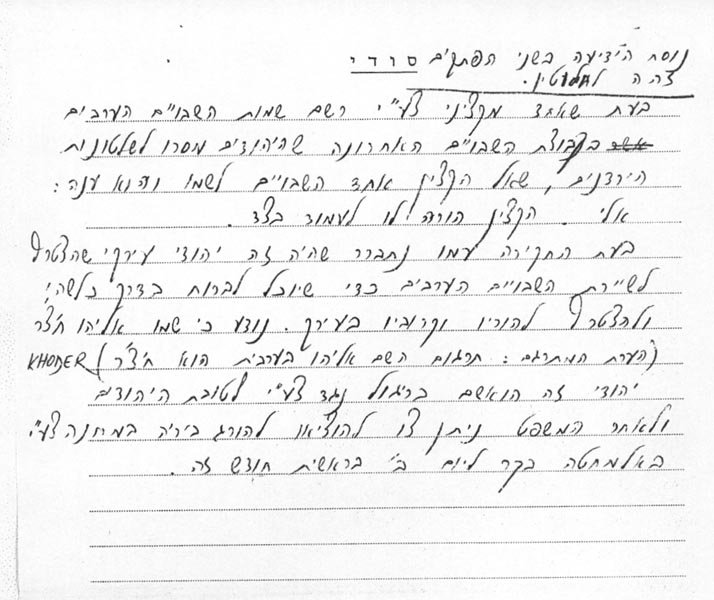 נוסח הידיעה בשני הפתקים סודי
זהה לחלוטין.
בעת שאחד מקציני צע"י רשם שמות השבויים הערבים
בקבוצת השבויים האחרונה שהיהודים מסרו לשלטונות
הירדנים, שאל הקצין אחד השבויים לשמו והוא ענה:
אלי. הקצין הורה לו לעמוד בצד.
בעת החקירה עמו נתברר שהיה זה יהודי עירקי שהצטרף
לשיירת השבויים הערבים כדי שיוכל לברוח בדרך כלשהי
ולהצטרף להוריו וקרוביו בעירק. נודע כי שמו אליהו ח'צר
(הערת המתרגם: תרגום השם אליהו בערבית הוא ח'צ'ר KHODER)
יהודי זה הואשם בריגול נגד צע"י לטובת היהודים
ולאחר המשפט ניתן צו להוציאו להורג ביריה במחנה צע"י
באלמחטה בקר ליום ב' בראשית חודש זה.